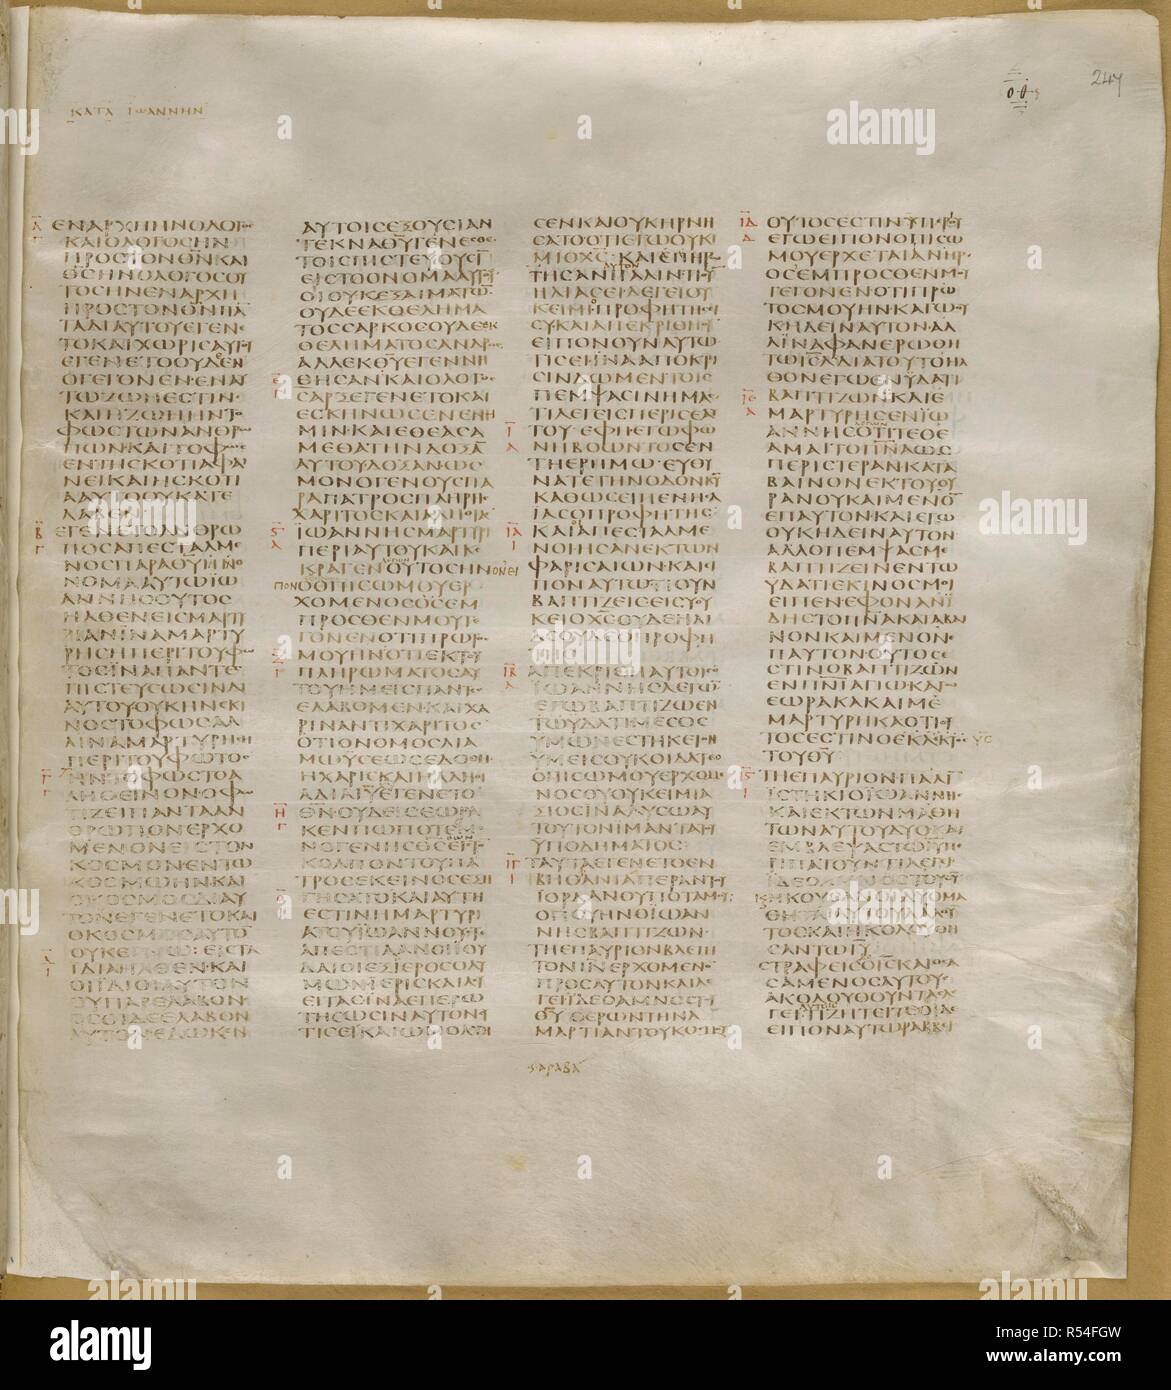 247
ΚΑΤΑ ΙΩΑΝΝΗΝ
ΕΝΑΡΧΗΗΝΟΛΟΓΟΣ
ΚΑΙΟΛΟΓΟΣΗΝ
ΠΡΟΣΤΟΝΘΝΚΑΙ
ΘΣΗΝΟΛΟΓΟΣΟΥ
ΤΟΣΗΝΕΝΑΡΧΗ
ΠΡΟΣΤΟΝΘΝΠΑ
ΤΑΔΙΑΥΤΟΥΕΓΕΝΕ
ΤΟΚΑΙΧΩΡΙΣΑΥΤΟΥ
ΕΓΕΝΕΤΟΟΥΔΕΝ
ΟΓΕΓΟΝΕΝ·ΕΝΑΥ
ΤΩΖΩΗΕΣΤΙΝ·
ΚΑΙΗΖΩΗΗΝΤΟ
ΦΩΣΤΩΝΑΝΘΡΩ
ΠΩΝ·ΚΑΙΤΟΦΩΣ
ΕΝΤΗΣΚΟΤΙΑΦΑΙ
ΝΕΙΚΑΙΗΣΚΟΤΙ
ΑΑΥΤΟΟΥΚΑΤΕ
ΛΑΒΕΝ
ΕΓΕΝΕΤΟΑΝΘΡΩ
ΠΟΣΑΠΕΣΤΑΛΜΕ
ΝΟΣΠΑΡΑΘΥΗΝΟ
ΝΟΜΑΑΥΤΩΙΩ
ΑΝΝΗΣΟΥΤΟΣ
ΗΛΘΕΝΕΙΣΜΑΡΤΥ
ΡΙΑΝΙΝΑΜΑΡΤΥ
ΡΗΣΗΠΕΡΙΤΟΥΦΩ
ΤΟΣΙΝΑΠΑΝΤΕΣ
ΠΙΣΤΕΥΣΩΣΙΝΔΙ
ΑΥΤΟΥΟΥΚΗΝΕΚΙ
ΝΟΣΤΟΦΩΣΑΛ
ΛΙΝΑΜΑΡΤΥΡΗΣΗ
ΠΕΡΙΤΟΥΦΩΤΟΣ
ΗΝΤΟΦΩΣΤΟΑ
ΛΗΘΕΙΝΟΝΟΦΩ
ΤΙΖΕΙΠΑΝΤΑΑΝ
ΘΡΩΠΟΝΕΡΧΟ
ΜΕΝΟΝΕΙΣΤΟΝ
ΚΟΣΜΟΝΕΝΤΩ
ΚΟΣΜΩΗΝΚΑΙ
ΟΚΟΣΜΟΣΔΙΑΥ
ΤΟΝΕΓΕΝΕΤΟΚΑΙ
ΟΚΟΣΜΟΣΑΥΤΟ
ΟΥΚΕΓΝΩ: ΕΙΣΤΑ
ΙΔΙΑΗΛΘΕΝ·ΚΑΙ
ΟΙΙΔΙΟΙΑΥΤΟΝ
ΟΥΠΑΡΕΛΑΒΟΝ·
ΟΣΟΙΔΕΕΛΑΒΟΝ
ΑΥΤΟΝΕΔΩΚΕΝ
ΑΥΤΟΙΣΕΞΟΥΣΙΑΝ
ΤΕΚΝΑΘΥΓΕΝΕΣΘΕ
ΤΟΙΣΠΙΣΤΕΥΟΥΣΙ
ΕΙΣΤΟΟΝΟΜΑΑΥΤΟΥ
ΟΙΟΥΚΕΞΑΙΜΑΤΩ
ΟΥΔΕΕΚΘΕΛΗΜΑ
ΤΟΣΣΑΡΚΟΣΟΥΔΕΕΚ
ΘΕΛΗΜΑΤΟΣΑΝΔΡΟΣ
ΑΛΛΕΚΘΥΕΓΕΝΝΗ
ΘΗΣΑΝΚΑΙΟΛΟΓΟΣ
ΣΑΡΞΕΓΕΝΕΤΟΚΑΙ
ΕΣΚΗΝΩΣΕΝΕΝΗ
ΜΙΝ·ΚΑΙΕΘΕΑΣΑ
ΜΕΘΑΤΗΝΔΟΞΑ
ΑΥΤΟΥΔΟΞΑΝΩΣ
ΜΟΝΟΓΕΝΟΥΣΠΑ
ΡΑΠΑΤΡΟΣΠΛΗΡΗΣ
ΧΑΡΙΤΟΣΚΑΙΑΛΗΘΙΑΣ
ΙΩΑΝΝΗΣΜΑΡΤΥΡΙ
ΠΕΡΙΑΥΤΟΥΚΑΙΚΕ
ΚΡΑΓΕΝΟΥΤΟΣΗΝΟΝΕΙ
ΠΟΝΟΟΠΙΣΩΜΟΥΕΡ
ΧΟΜΕΝΟΣΟΣΕΜ
ΠΡΟΣΘΕΝΜΟΥΓΕ
ΓΟΝΕΝΟΤΙΠΡΩΤΟΣ
ΜΟΥΗΝΟΤΙΕΚΤΟΥ
ΠΛΗΡΩΜΑΤΟΣΑΥ
ΤΟΥΗΜΕΙΣΠΑΝΤΕΣ
ΕΛΑΒΟΜΕΝΚΑΙΧΑ
ΡΙΝΑΝΤΙΧΑΡΙΤΟΣ
ΟΤΙΟΝΟΜΟΣΔΙΑ
ΜΩΥΣΕΩΣΕΔΟΘΗ
ΗΧΑΡΙΣΚΑΙΗΑΛΗΘΙ
ΑΔΙΑΙΥΕΓΕΝΕΤΟ
ΘΝΟΥΔΕΙΣΕΩΡΑ
ΚΕΝΠΩΠΟΤΕΜΟ
ΝΟΓΕΝΗΣΘΣΕΙΣΤΟ
ΚΟΛΠΟΝΤΟΥΠΑ
ΤΡΟΣΕΚΕΙΝΟΣΕΞΗ
ΓΗΣΑΤΟΚΑΙΑΥΤΗ
ΕΣΤΙΝΗΜΑΡΤΥΡΙ
ΑΤΟΥΙΩΑΝΝΟΥΟΤΕ
ΑΠΕΣΤΙΛΑΝΟΙΙΟΥ
ΔΑΙΟΙΕΞΙΕΡΟΣΟΛΥ
ΜΩΝΙΕΡΙΣΚΑΙΛΕΥ
ΕΙΤΑΣΙΝΑΕΠΕΡΩ
ΤΗΣΩΣΙΝΑΥΤΟΝΣΥ
ΤΙΣΕΙΚΑΙΩΜΟΛΟΓΗ
ΣΕΝΚΑΙΟΥΚΗΡΝΗ
ΣΑΤΟΟΤΙΕΓΩΟΥΚΙ
ΜΙΟΧΣ: ΚΑΙΕΠΗΡΩ
ΤΗΣΑΝΠΑΛΙΝΤΙΟΥ
ΗΛΙΑΣΕΙΛΕΓΕΙΟΥ
ΚΕΙΜΙΠΡΟΦΗΤΗΣΕΙ
ΣΥΚΑΙΑΠΕΚΡΙΘΗΟΥ
ΕΙΠΟΝΟΥΝΑΥΤΩ
ΤΙΣΕΙΙΝΑΑΠΟΚΡΙ
ΣΙΝΔΩΜΕΝΤΟΙΣ
ΠΕΜΨΑΣΙΝΗΜΑΣ
ΤΙΛΕΓΕΙΣΠΕΡΙΣΕΑΥ
ΤΟΥ·ΕΦΗΕΓΩΦΩ
ΝΗΒΟΩΝΤΟΣΕΝ
ΤΗΕΡΗΜΩ·ΕΥΘΥ
ΝΑΤΕΤΗΝΟΔΟΝΚΥ
ΚΑΘΩΣΕΙΠΕΝΗΣΑ
ΙΑΣΟΠΡΟΦΗΤΗΣ·
ΚΑΙΑΠΕΣΤΑΛΜΕ
ΝΟΙΗΣΑΝΕΚΤΩΝ
ΦΑΡΙΣΑΙΩΝΚΑΙΕΙ
ΠΟΝΑΥΤΩΤΙΟΥΝ
ΒΑΠΤΙΖΕΙΣΕΙΣΥΟΥ
ΚΕΙΟΧΣΟΥΔΕΗΛΙ
ΑΣΟΥΔΕΟΠΡΟΦΗ
ΤΗΣ
ΑΠΕΚΡΙΘΗΑΥΤΟΙΣΟ
ΙΩΑΝΝΗΣΛΕΓΩ
ΕΓΩΒΑΠΤΙΖΩΕΝ
ΤΩΥΔΑΤΙΜΕΣΟΣ
ΥΜΩΝΕΣΤΗΚΕΙΟΝ
ΥΜΕΙΣΟΥΚΟΙΔΑΤΕΟ
ΟΠΙΣΩΜΟΥΕΡΧΟΜΕ
ΝΟΣΟΥΟΥΚΕΙΜΙΑ
ΞΙΟΣΙΝΑΛΥΣΩΑΥ
ΤΟΥΤΟΝΙΜΑΝΤΑΤΟΥ
ΥΠΟΔΗΜΑΤΟΣ:
ΤΑΥΤΑΕΓΕΝΕΤΟΕΝ
ΒΗΘΑΝΙΑΠΕΡΑΝΤΟΥ
ΙΟΡΔΑΝΟΥΠΟΤΑΜΟΥ:
ΟΠΟΥΗΝΟΙΩΑΝ
ΝΗΣΒΑΠΤΙΖΩΝ·
ΤΗΕΠΑΥΡΙΟΝΒΛΕΠΙ
ΤΟΝΙΝΕΡΧΟΜΕΝΟ
ΠΡΟΣΑΥΤΟΝΚΑΙΛΕ
ΓΕΙΙΔΕΟΑΜΝΟΣΤΟΥ
ΘΥΟΕΡΩΝΤΗΝΑ
ΜΑΡΤΙΑΝΤΟΥΚΟΣΜΟΥ
ΟΥΤΟΣΕΣΤΙΝΥΠΕΡΟΥ
ΕΓΩΕΙΠΟΝΟΠΙΣΩ
ΜΟΥΕΡΧΕΤΑΙΑΝΗΡ
ΟΣΕΜΠΡΟΣΘΕΝΜΟΥ
ΓΕΓΟΝΕΝΟΤΙΠΡΩ
ΤΟΣΜΟΥΗΝΚΑΓΩΟΥ
ΚΗΔΕΙΝΑΥΤΟΝΑΛ
ΛΙΝΑΦΑΝΕΡΩΘΗ
ΤΩΙΣΛΔΙΑΤΟΥΤΟΗΛ
ΘΟΝΕΓΩΕΝΥΔΑΤΙ
ΒΑΠΤΙΖΩΝΚΑΙΕ
ΜΑΡΤΥΡΗΣΕΝΙΩ
ΑΝΝΗΣΟΤΙΤΕΘΕ
ΑΜΑΙΤΟΠΝΑΩΣ
ΠΕΡΙΣΤΕΡΑΝΚΑΤΑ
ΒΑΙΝΟΝΕΚΤΟΥΟΥ
ΡΑΝΟΥΚΑΙΜΕΝΟ
ΕΠΑΥΤΟΝ·ΚΑΙΕΓΩ
ΟΥΚΗΔΕΙΝΑΥΤΟΝ
ΑΛΛΟΠΕΜΨΑΣΜΕ
ΒΑΠΤΙΖΕΙΝΕΝΤΩ
ΥΔΑΤΙΕΚΙΝΟΣΜΟΙ
ΕΙΠΕΝΕΦΟΝΑΝΙ
ΔΗΣΤΟΠΝΑΚΑΙΑΒΑΙ
ΝΟΝΚΑΙΜΕΝΟΝΕ
ΠΑΥΤΟΝΟΥΤΟΣΕ
ΣΤΙΝΟΒΑΠΤΙΖΩΝ
ΕΝΠΝΙΑΓΙΩΚΑΓΩ
ΕΩΡΑΚΑΚΑΙΜΕ
ΜΑΡΤΥΡΗΚΑΟΤΙΟΥ
ΤΟΣΕΣΤΙΝΟΕΚΛΕΚΤΟΣ
ΤΟΥΘΥ
ΤΗΕΠΑΥΡΙΟΝΠΑΛΙ
ΙΣΤΗΚΙΟΙΩΑΝΝΗΣ
ΚΑΙΕΚΤΩΝΜΑΘΗ
ΤΩΝΑΥΤΟΥΔΥΟΚΑΙ
ΕΜΒΛΕΨΑΣΤΩΙΥΠΕ
ΡΙΠΑΤΟΥΝΤΙΛΕΓΕΙ
ΙΔΕΟΑΜΝΟΣΤΟΥΘΥ
ΗΚΟΥΣΑΝΟΙΔΥΟΜΑ
ΘΗΤΑΙΑΥΤΟΥΛΑΛΟΥ
ΤΟΣΚΑΙΗΚΟΛΟΥΘΗ
ΣΑΝΤΩΙΥ
ΣΤΡΑΦΕΙΣΟΙΣΚΑΙΘΕΑ
ΣΑΜΕΝΟΣΑΥΤΟΥΣ
ΑΚΟΛΟΥΘΟΥΝΤΑΣΛΕ
ΓΕΙΤΙΖΗΤΕΙΤΕΟΙΔΕ
ΕΙΠΟΝΑΥΤΩΡΑΒΒΕΙ
alamy
Image ID: R54FGW
www.alamy.com